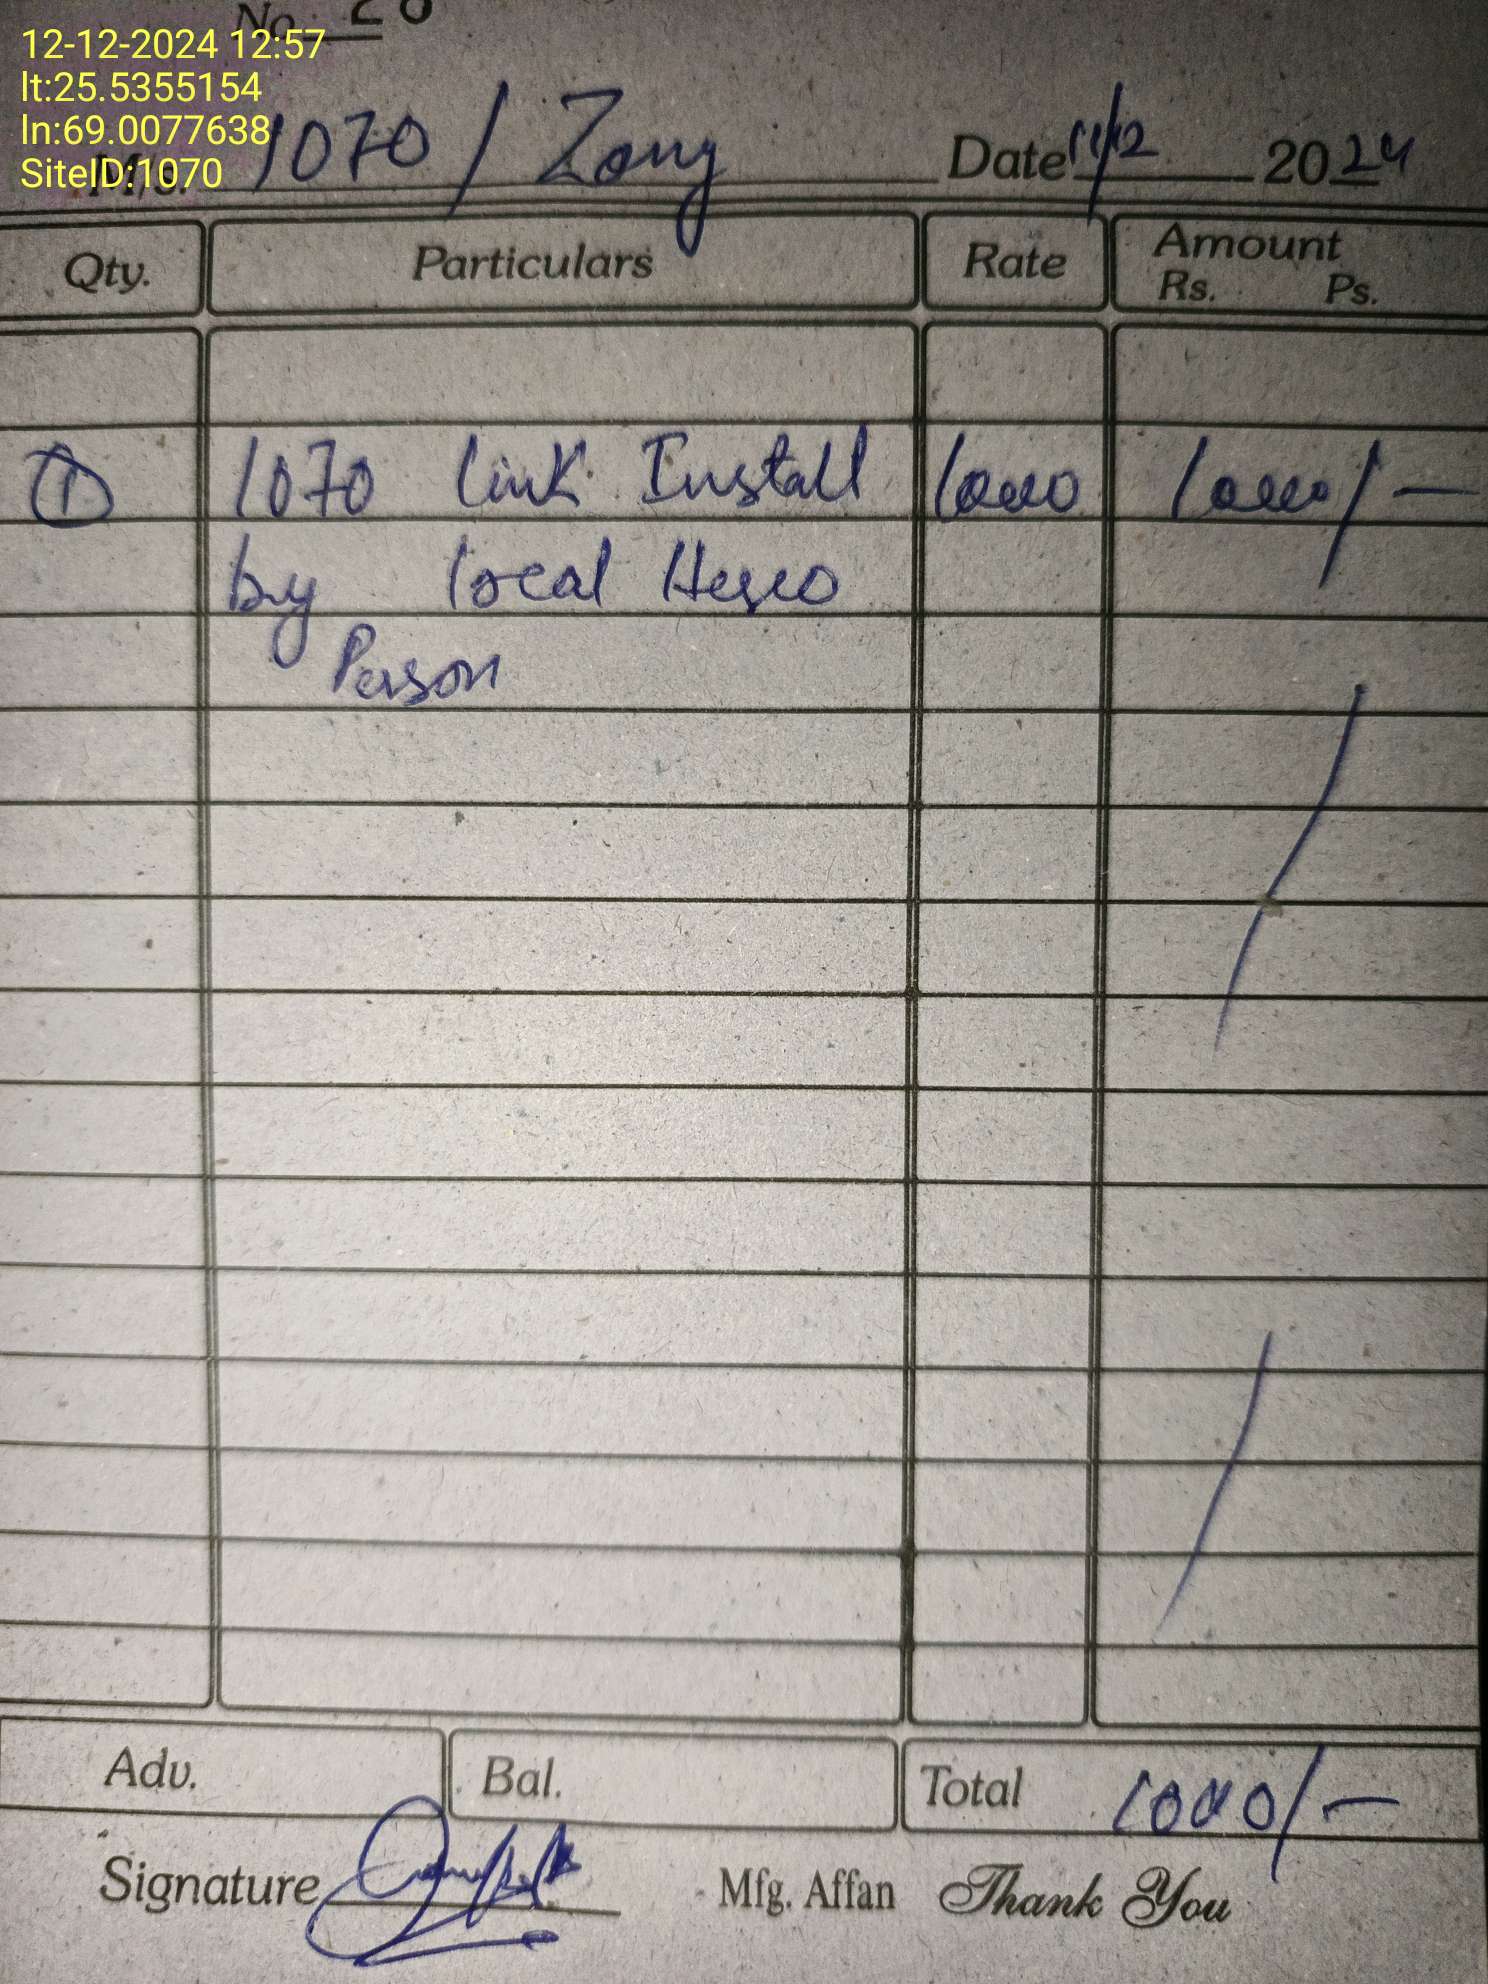 No. 20
12-12-2024 12:57
lt:25.5355154
ln:69.0077638
SiteID:1070
M/s. 1070 / Zong Date 11/12 2024
Qty. Particulars Rate Amount
Rs. Ps.
1 1070 Link Install 10000 10000/-
by local Hesco
Person
Adv. Bal. Total 10000/-
Signature Mfg. Affan Thank You